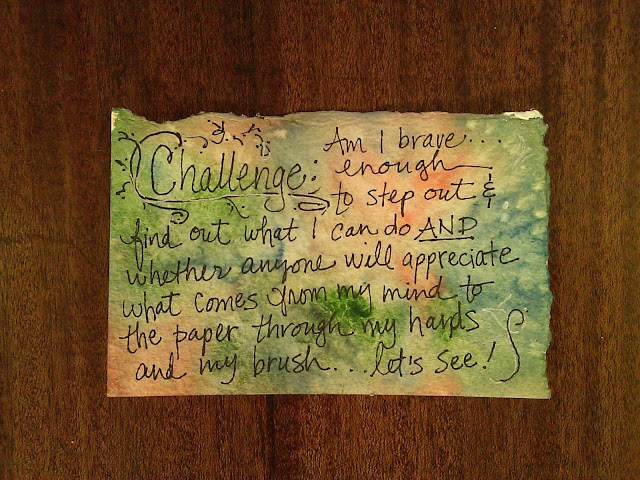 Challenge: Am I brave...
enough
to step out &
find out what I can do AND
whether anyone will appreciate
what comes from my mind to
the paper through my hands
and my brush...let's see!